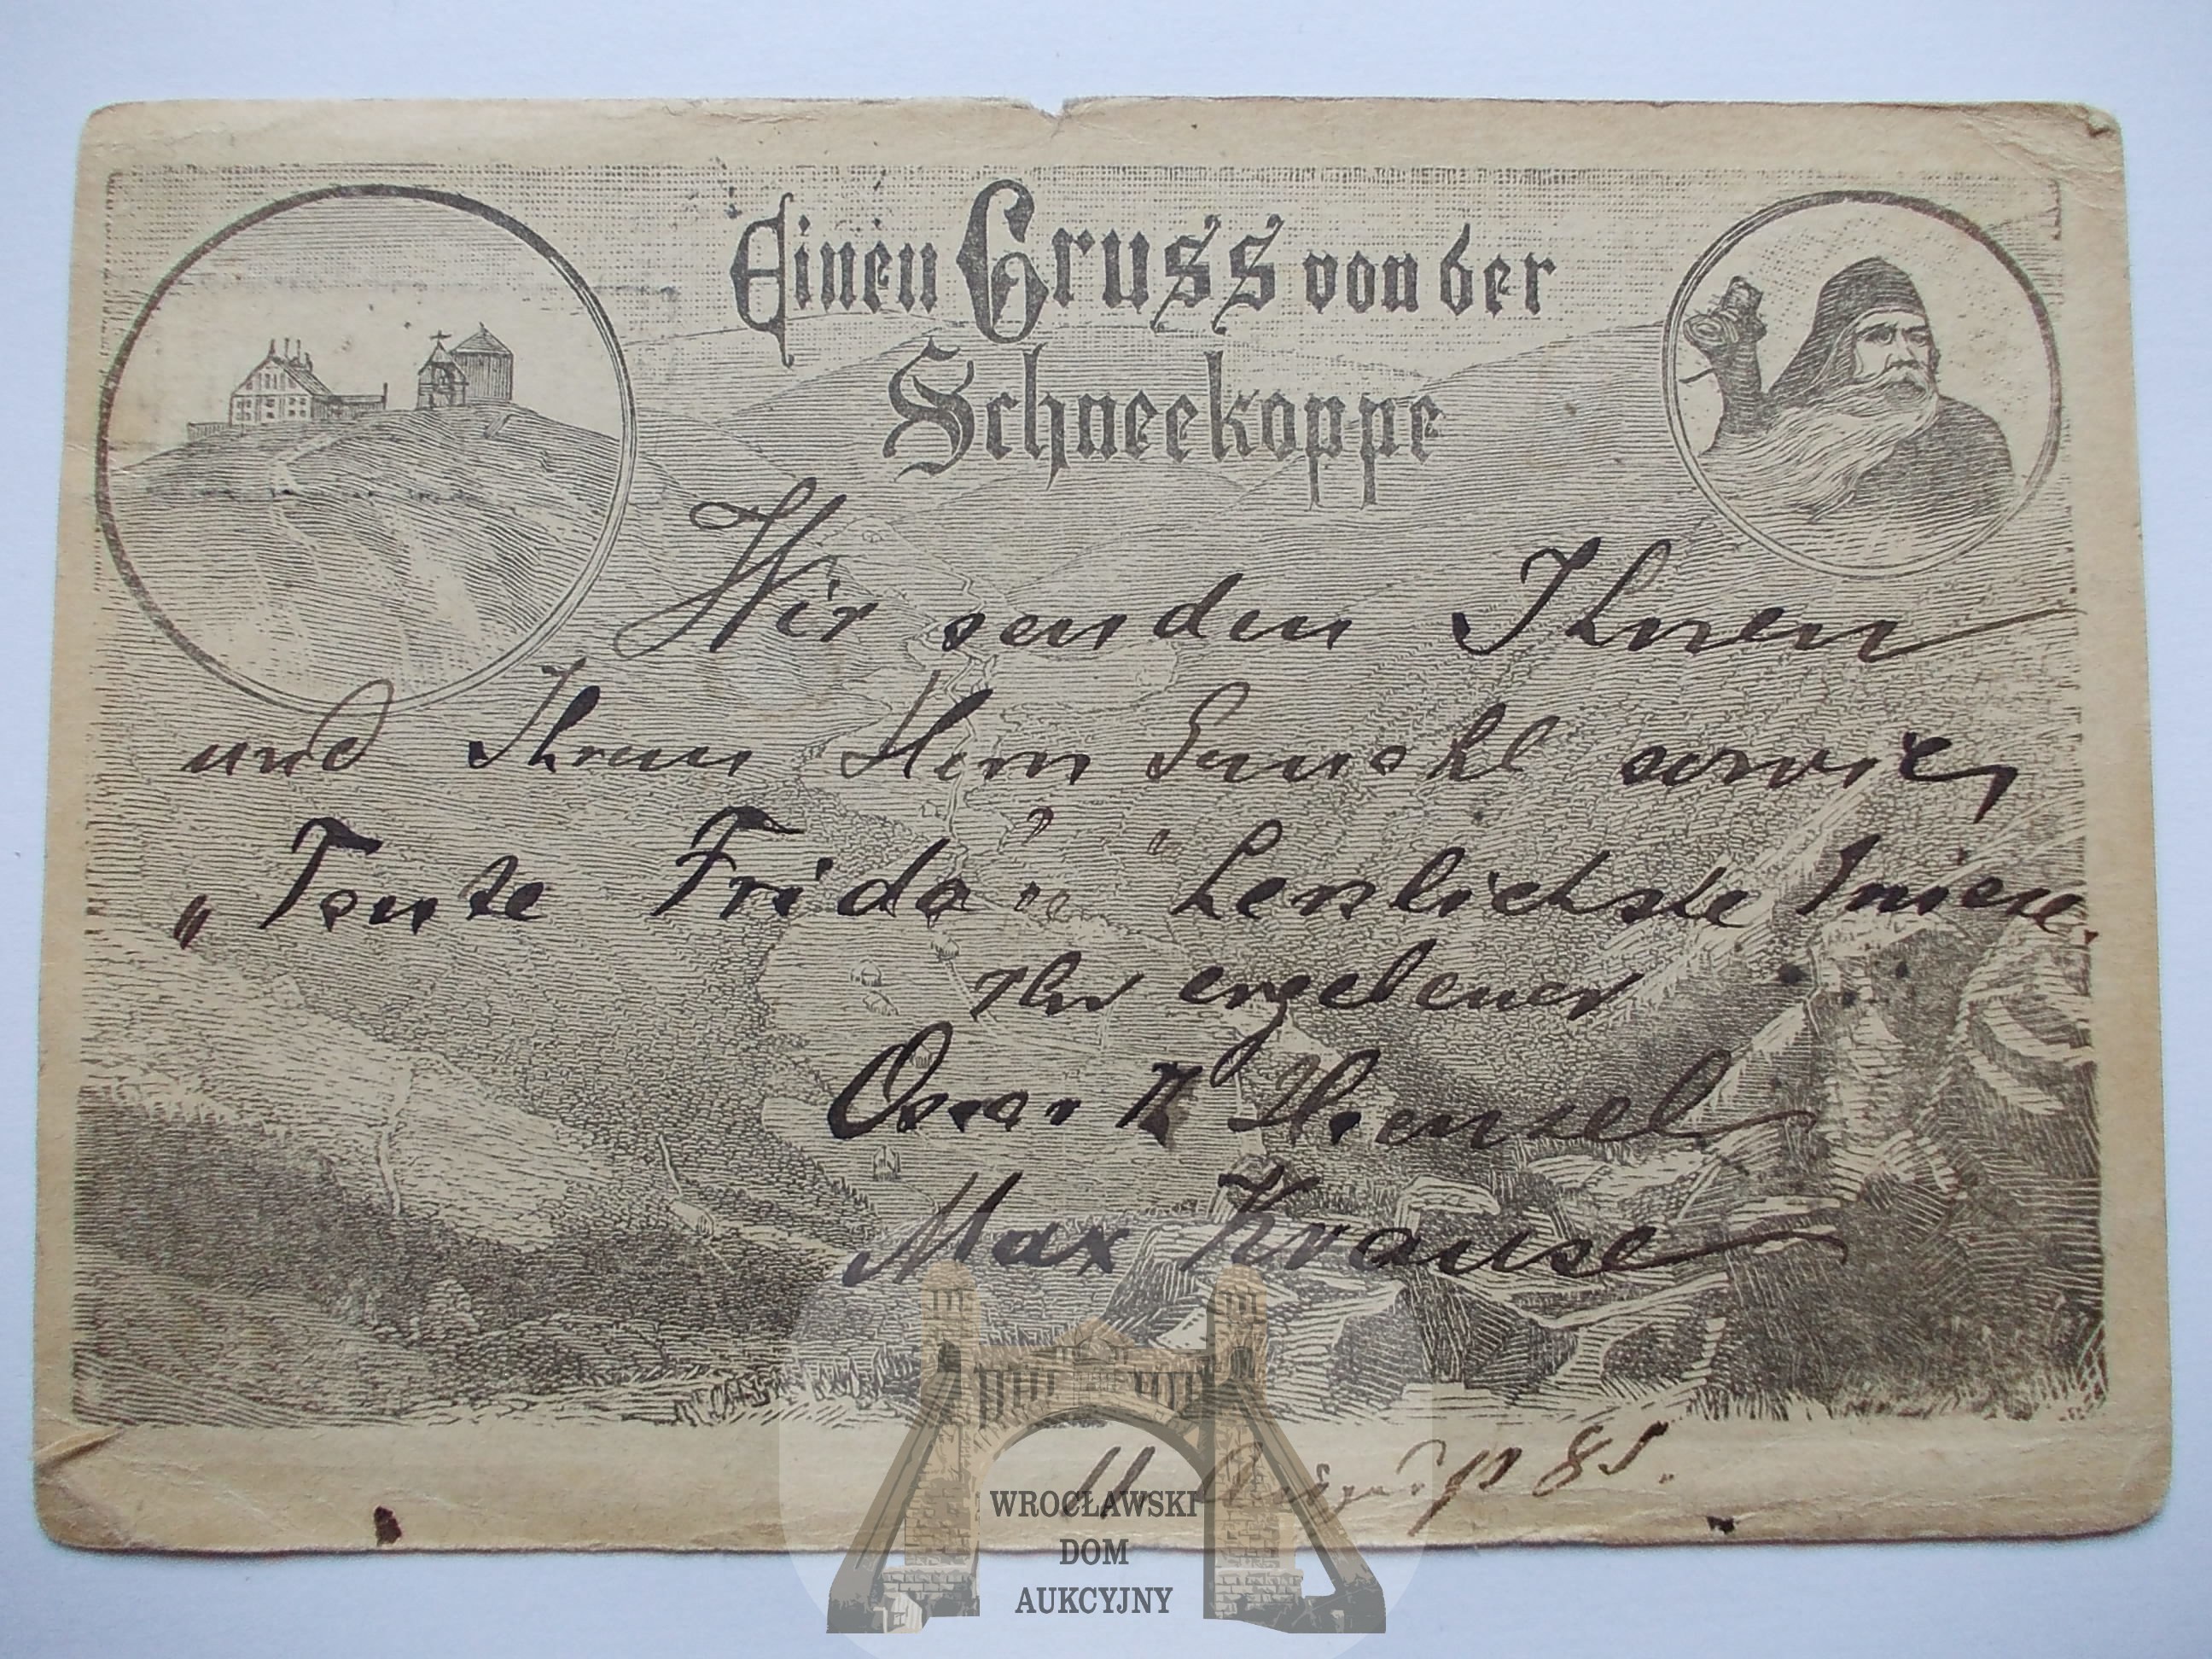 Einen Gruss von der
Schneekoppe
Wir senden Ihnen
und Ihrem Herrn Gemahl sowie
„Tante Frida" herzlichste Grüsse.
Ihr ergebener
Oscar Hensel
Max Krause
11. August 85.
WROCŁAWSKI
DOM
AUKCYJNY